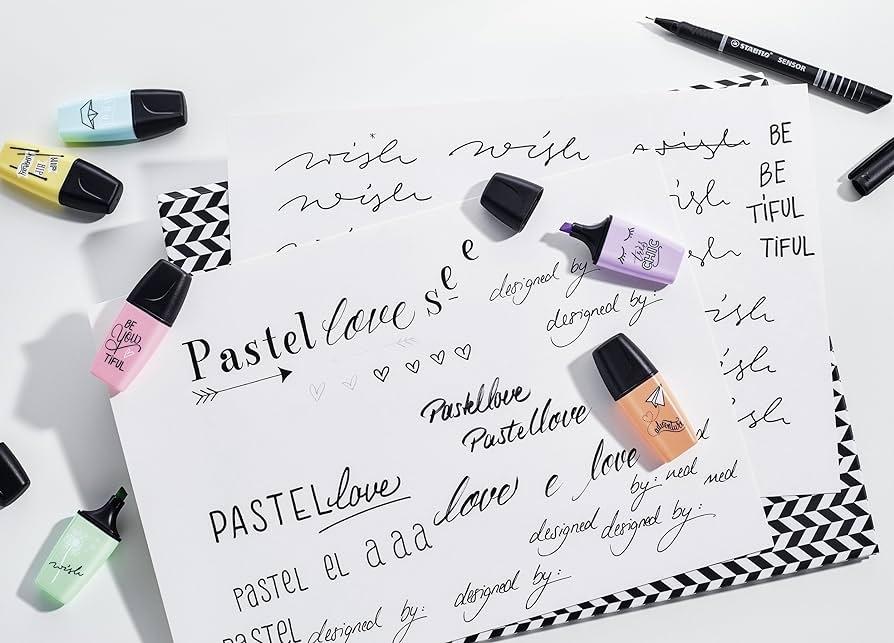 STABILO SENSOR
wish wish wish BE
BE
wish wish TiFUL
wish TIFUL
HIP HIP
très
CHIC
designed by
designed by:
BE
YOU
TIFUL
Pastel love s e e
wish
wish
wish
Pastellove
Pastellove
adventure
PASTEL love love e love
by: ned
ned
designed designed by:
wish
PASTEL EL a a a
designed by:
PASTEL designed by: